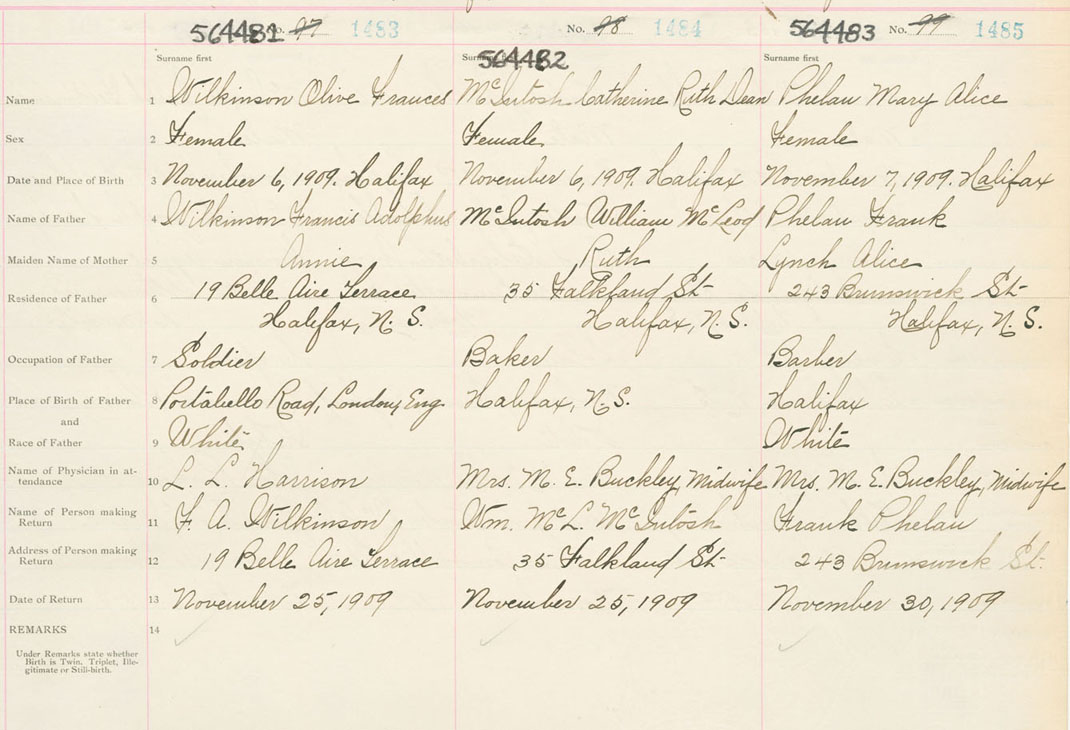 564481 No. 97 1483 No. 98 1484 564483 No. 99 1485
564482
Surname first Surname first Surname first
Name 1 Wilkinson Olive Frances McIntosh Catherine Ruth Dean Phelan Mary Alice
Sex 2 Female Female Female
Date and Place of Birth 3 November 6, 1909. Halifax November 6, 1909. Halifax November 7, 1909. Halifax
Name of Father 4 Wilkinson Francis Adolphus McIntosh William McLeod Phelan Frank
Maiden Name of Mother 5 Annie Ruth Lynch Alice
Residence of Father 6 19 Belle Aire Terrace 35 Falkland St 243 Brunswick St
Halifax, N. S. Halifax, N. S. Halifax, N. S.
Occupation of Father 7 Soldier Baker Barber
Place of Birth of Father 8 Portabello Road, London, Eng Halifax, N. S. Halifax
and
Race of Father 9 White White
Name of Physician in at-
tendance 10 L. L. Harrison Mrs. M. E. Buckley, Midwife Mrs. M. E. Buckley, Midwife
Name of Person making
Return 11 F. A. Wilkinson Wm. McL. McIntosh Frank Phelan
Address of Person making
Return 12 19 Belle Aire Terrace 35 Falkland St 243 Brunswick St.
Date of Return 13 November 25, 1909 November 25, 1909 November 30, 1909
REMARKS 14
Under Remarks state whether
Birth is Twin. Triplet, Ille-
gitimate or Still-birth.